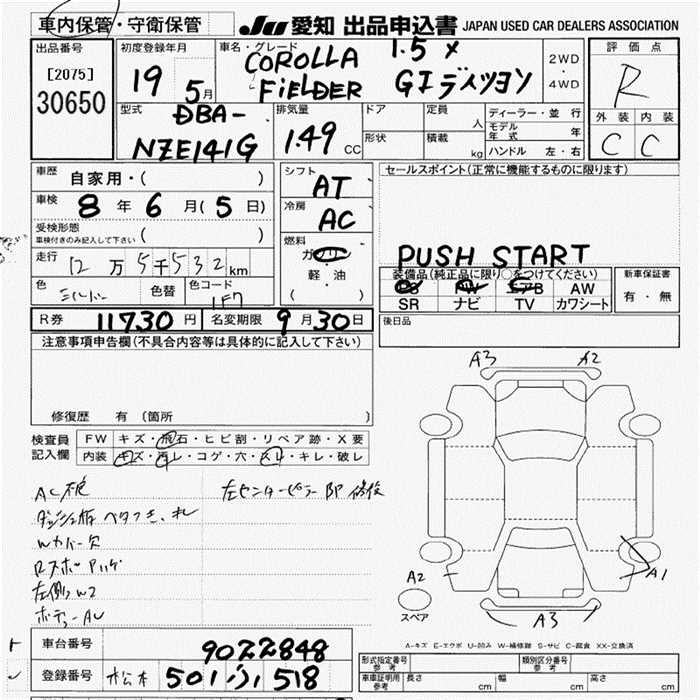 車内保管・守衛保管
JU 愛知 出品申込書 JAPAN USED CAR DEALERS ASSOCIATION
出品番号
[2075]
30650
初度登録年月
19 5月
車名・グレード
COROLLA 1.5 X
FIELDER GIエディション
2WD
・
4WD
評価点
R
外装 内装
C C
型式
DBA-
NZE141G
排気量
1.49 CC
ドア
形状
定員 人
積載 kg
ディーラー・並行
モデル年式 年
ハンドル 左・右
車歴 自家用・( )
車検 8年6月(5日)
受検形態
車検付きのみ記入して下さい ( )
走行 12万5千532km
色 シルバー 色替 色コード 1F7
シフト AT
冷房 AC
燃料 ガソリン
軽・油
( )
セールスポイント(正常に機能するものに限ります)
PUSH START
装備品(純正品に限り○をつけてください)
PS PW エアB AW
SR ナビ TV カワシート
新車保証書
有・無
R券 11730円 名変期限 9月30日
後日品
注意事項申告欄(不具合内容等は具体的に記入して下さい)
修復歴 有 (箇所 )
検査員記入欄
FW キズ・飛石・ヒビ割・リペア跡・X要
内装 キズ・汚レ・コゲ・穴・スレ・キレ・破レ
左センターピラー部 修復
左側W2
A3 A2
A2 A1
A3
スペア
A-キズ E-エクボ U-凹み W-補修跡 S-サビ C-腐食 XX-交換済
車台番号 9022848
登録番号 松本 501 ふ 518
形式指定番号 参考
類別区分番号 参考
車庫証明用 参考 長さ cm 幅 cm 高さ cm